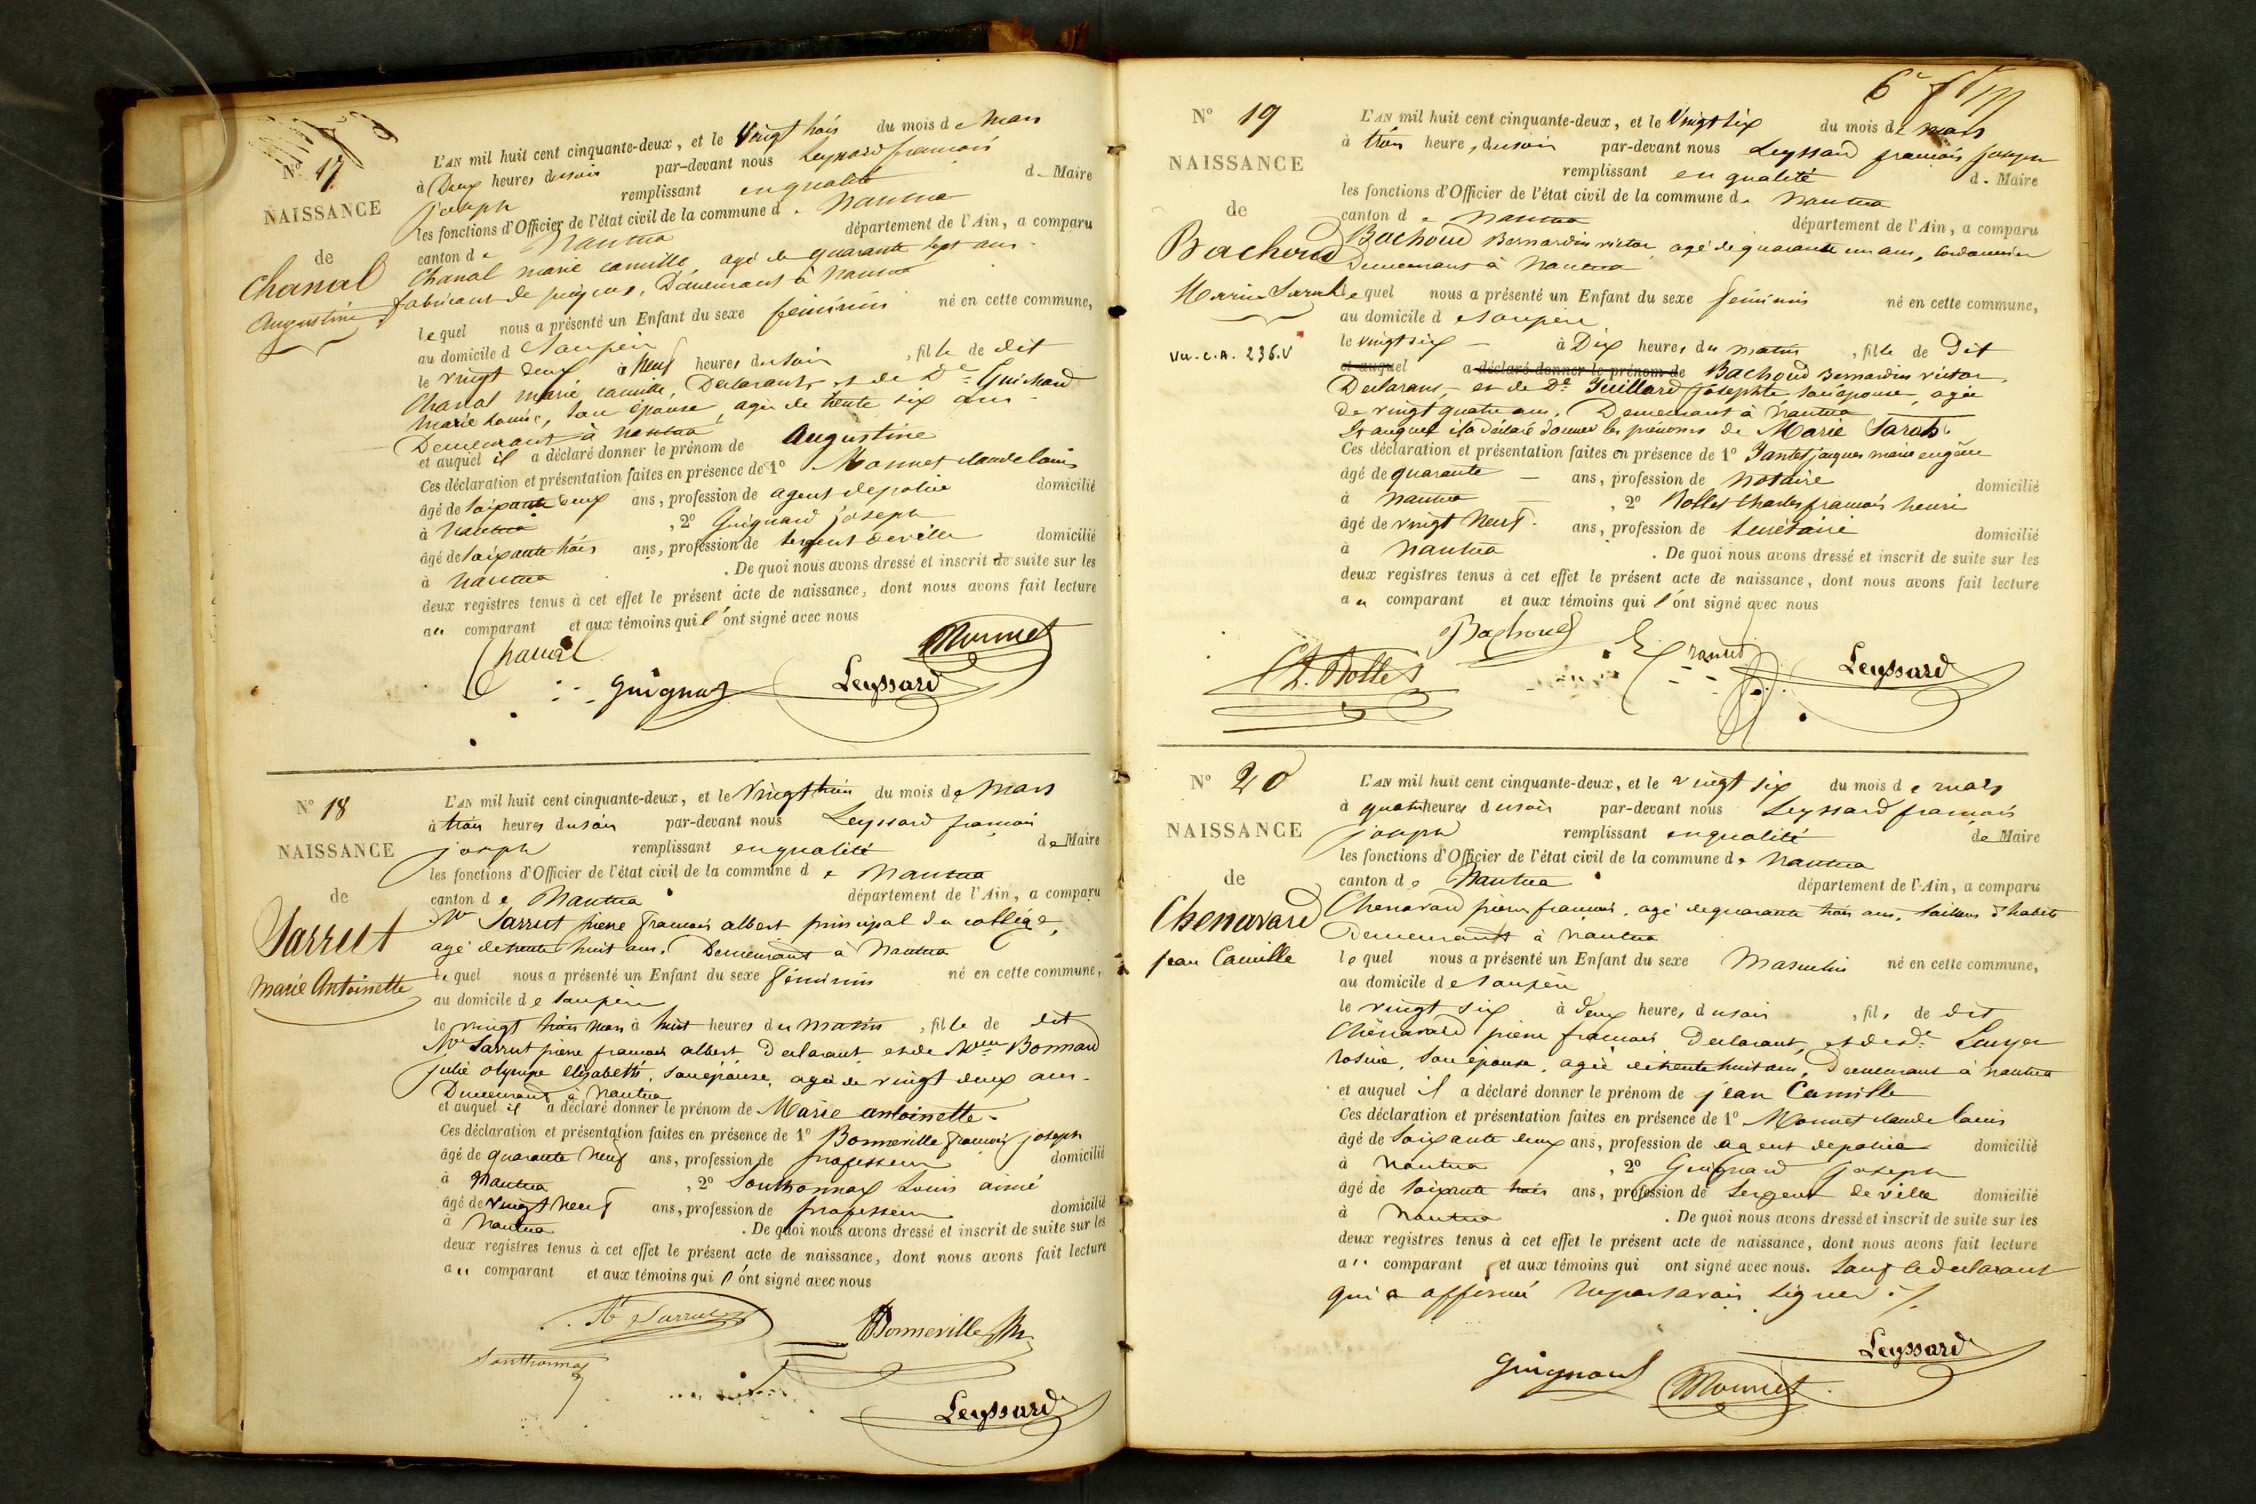 N° 17
NAISSANCE
de
Chanal
Augustine
L'AN mil huit cent cinquante-deux, et le Vingt trois du mois de Mars
à Deux heures du soir par-devant nous Leyssard francois
joseph remplissant en qualité de Maire
les fonctions d'Officier de l'état civil de la commune de Nantua
canton de Nantua département de l'Ain, a comparu
Chanal marie camille agé de quarante sept ans
fabricant de peignes, Demeurant à Nantua
lequel nous a présenté un Enfant du sexe féminin né en cette commune,
au domicile de son père
le vingt deux à Neuf heures du soir, fille de dit
Chanal marie camille, Déclarant, et de De Guichard
Marie Louise, son épouse, agée de trente six ans
Demeurant à Nantua
et auquel il a déclaré donner le prénom de Augustine
Ces déclaration et présentation faites en présence de 1° Monnet claude louis
âgé de soixante deux ans, profession de agent de police domicilié
à Nantua, 2° Guignard joseph
âgé de soixante trois ans, profession de sergent de ville domicilié
à Nantua. De quoi nous avons dressé et inscrit de suite sur les
deux registres tenus à cet effet le présent acte de naissance, dont nous avons fait lecture
au comparant et aux témoins qui l'ont signé avec nous
Chanal Monnet
Guignard Leyssard
N° 18
NAISSANCE
de
Sarrut
Marie Antoinette
L'AN mil huit cent cinquante-deux, et le Vingt trois du mois de Mars
à trois heures du soir par-devant nous Leyssard francois
joseph remplissant en qualité de Maire
les fonctions d'Officier de l'état civil de la commune de Nantua
canton de Nantua département de l'Ain, a comparu
Mr Sarrut pierre francois albert principal du collége,
agé de trente huit ans. Demeurant à Nantua
lequel nous a présenté un Enfant du sexe féminin né en cette commune,
au domicile de son père
le vingt trois mars à huit heures du matin, fille de dit
Mr Sarrut pierre francois albert, Déclarant et de Mme Bonnard
julie olympe elizabeth, son épouse, agée de vingt deux ans.
Demeurant à Nantua
et auquel il a déclaré donner le prénom de Marie antoinette
Ces déclaration et présentation faites en présence de 1° Bonneville francois joseph
âgé de quarante neuf ans, profession de professeur domicilié
à Nantua, 2° Southonnax Louis aimé
âgé de vingt neuf ans, profession de professeur domicilié
à Nantua. De quoi nous avons dressé et inscrit de suite sur les
deux registres tenus à cet effet le présent acte de naissance, dont nous avons fait lecture
au comparant et aux témoins qui l'ont signé avec nous
Sarrut Bonneville
Southonnax
Leyssard
N° 19
NAISSANCE
de
Bachoud
Marie Sarah
L'AN mil huit cent cinquante-deux, et le Vingt six du mois de mars
à trois heures, du soir par-devant nous Leyssard francois joseph
remplissant en qualité de Maire
les fonctions d'Officier de l'état civil de la commune de Nantua
canton de Nantua département de l'Ain, a comparu
Bachoud Bernardin victor, agé de quarante un ans, cordonnier
Demeurant à Nantua
lequel nous a présenté un Enfant du sexe féminin né en cette commune,
au domicile de son père
Vu. C.A. 236.V
le vingt six à Dix heures du matin, fille de Dit
et auquel a déclaré donner le prénom de Bachoud Bernardin victor,
Déclarant, et de De Juillard josephte, son épouse, agée
de vingt quatre ans. Demeurant à Nantua
Et auquel il a déclaré donner les prénoms de Marie Sarah
Ces déclaration et présentation faites en présence de 1° jacques marie eugène
âgé de quarante ans, profession de Notaire domicilié
à Nantua, 2° Rollet Charles francois henri
âgé de vingt Neuf ans, profession de Secrétaire domicilié
à Nantua. De quoi nous avons dressé et inscrit de suite sur les
deux registres tenus à cet effet le présent acte de naissance, dont nous avons fait lecture
au comparant et aux témoins qui l'ont signé avec nous
Bachoud
Ch. Rollet Leyssard
N° 20
NAISSANCE
de
Chenavard
jean Camille
L'AN mil huit cent cinquante-deux, et le vingt six du mois de mars
à quatre heures du soir par-devant nous Leyssard francois
joseph remplissant en qualité de Maire
les fonctions d'Officier de l'état civil de la commune de Nantua
canton de Nantua département de l'Ain, a comparu
Chenavard pierre francois, agé de quarante trois ans, tailleur d'habits
Demeurant à Nantua
lequel nous a présenté un Enfant du sexe Masculin né en cette commune,
au domicile de son père
le vingt six à deux heures, du soir, fils de dit
Chenavard pierre francois Déclarant, et de De
rosine, son épouse, agée de trente huit ans, Demeurant à Nantua
et auquel il a déclaré donner le prénom de jean Camille
Ces déclaration et présentation faites en présence de 1° Monnet claude louis
âgé de soixante deux ans, profession de agent de police domicilié
à Nantua, 2° Guignard joseph
âgé de soixante trois ans, profession de sergent de ville domicilié
à Nantua. De quoi nous avons dressé et inscrit de suite sur les
deux registres tenus à cet effet le présent acte de naissance, dont nous avons fait lecture
au comparant et aux témoins qui ont signé avec nous. Sauf le déclarant
qui a affirmé ne pas savoir signer ./.
Leyssard
Guignard Monnet